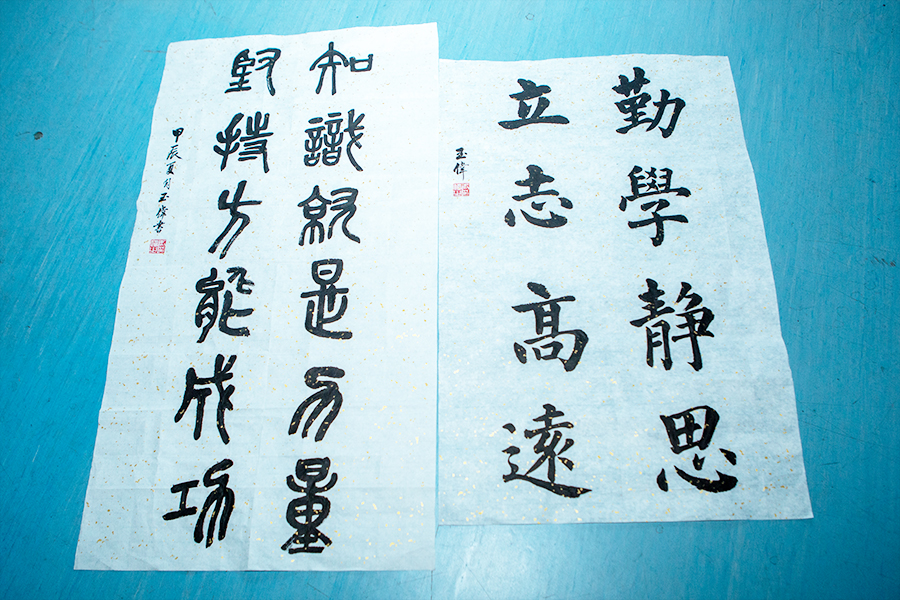 勤學静思
立志髙遠
玉偉
知識就是力量
堅持方能成功
甲辰夏月玉偉書